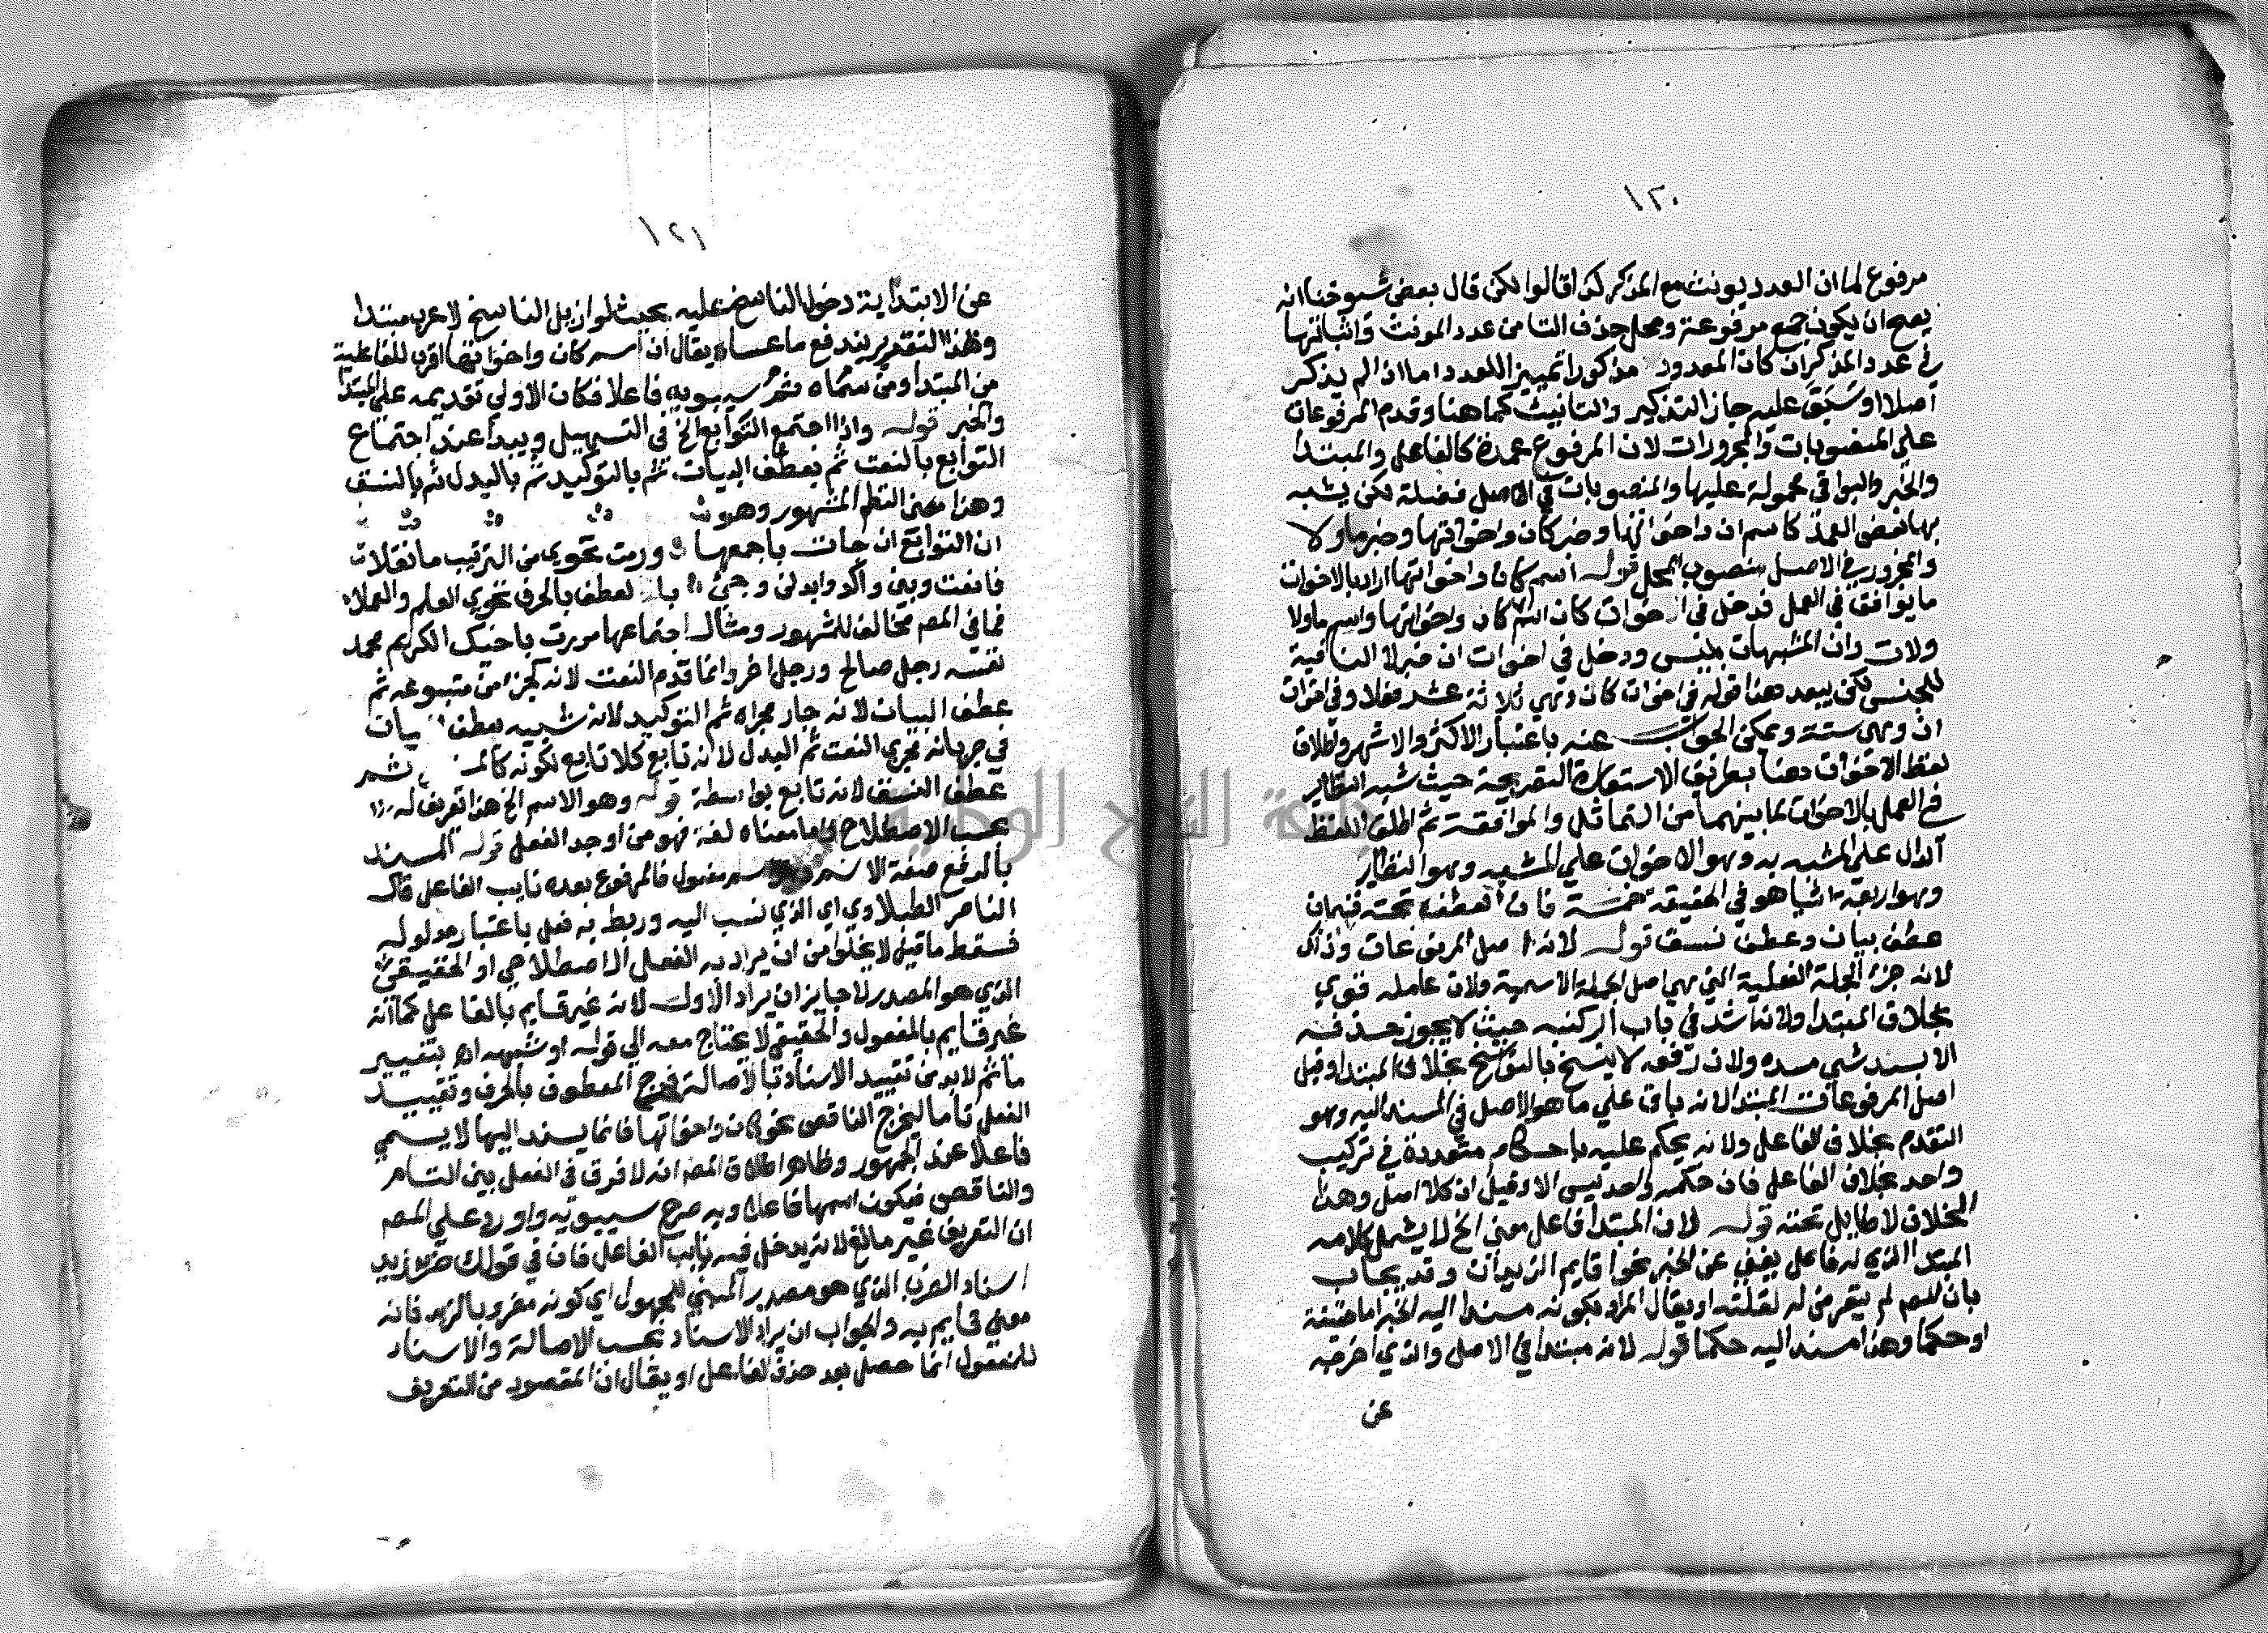 ١٢٠
مرفوع لما ان العدد يونث مع المذكر كذا قالوا لكن قال بعض شيوخنا انه
يصح ان يكون جمع مرفوعة ومحل حذف التا من عدد المونث واثباتها
في عدد المذكر ان كان المعدود مذكورا تمييزا للعدد اما اذا لم يذكر
اصلا او سبق عليه جاز التذكير والتانيث كما هنا وقدم المرفوعات
على المنصوبات والمجرورات لان المرفوع عمدة كالفاعل والمبتدا
والخبر والبواقي محمولة عليها والمنصوبات في الاصل فضلة لكن يشبه
بها بعض العمد كاسم ان واخواتها وخبر كان واخواتها وخبر ما ولا
والمجرور في الاصل منصوب المحل قوله اسم كان واخواتها اراد بالاخوات
ما يوافق في العمل فدخل في اخوات كان اسم كان واخواتها واسم ما ولا
ولات وان المشبهات بليس ودخل في اخوات ان خبر لا النافية
للجنس لكن يبعد هذا قوله في اخوات كان وهي ثلاثة عشر فعلا وفي اخوات
ان وهي ستة ويمكن الجواب عنه باعتبار الاكثر والاشهر واطلاق
لفظ الاخوات هنا بطريق الاستعارة التصريحية حيث شبه النظاير
في العمل بالاخوات بما بينهما من التماثل والموافقة ثم اطلق اللفظ
الدال على المشبه به وهو الاخوات علي المشبه وهو النظاير
وهو اربعة اشيا هو في الحقيقة خمسة فان العطف تحته قسمان
عطف بيان وعطف نسف قوله لانه اصل المرفوعات وذلك
لانه جزء الجملة الفعلية التي هي اصل الجملة الاسمية ولان عامله قوي
بخلاف المبتدا ولانه اشد في باب الركنيه حيث لا يجوز حذفه
الا بسد شي مسده ولان رفعه لا ينسخ بالنواسخ بخلاف المبتدا وقيل
اصل المرفوعات المبتدا لانه باق علي ما هو الاصل في المسند اليه وهو
التقدم بخلاف الفاعل ولانه يحكم عليه باحكام متعددة في تركيب
واحد بخلاف الفاعل فان حكمه واحد ليس الا وقيل ان كلا اصل وهذا
الخلاف لا طايل تحته قوله لان المبتدا فاعل معني الخ لا يشمل كلامه
المبتدا الذي له فاعل يغني عن الخبر نحو اقايم الزيدان وقد يجاب
بان المص لم يتعرض له لقلته او يقال المراد بكونه مسندا اليه الخبر اما حقيقة
او حكما وهذا مسند اليه حكما قوله لانه مبتدا في الاصل والذي اخرجه
عن
١٢١
عن الابتداية دخول الناسخ عليه بحيث لو ازيل الناسخ لاعرب مبتدا
وبهذا التقدير يندفع ما عساه يقال ان اسم كان واخواتها اقرب للفاعلية
من المبتدا ومن سماه سيبويه فاعلا فكان الاولي تقديمه على المبتدا
والخبر قوله واذا اجتمع التوابع الخ في التسهيل ويبدا عند اجتماع
التوابع بالنعت ثم بعطف البيان ثم بالتوكيد ثم بالبدل ثم بالنسق
وهذا معنى النظم المشهور وهو
ان التوابع ان جات باجمعها ورمت تحوي من الترتيب ما نقلا
فانعت وبين واكد وابدلن وجئ بالعطف بالحرف تحوي العلم والعملا
فما في المص مخالف للمشهور ومثال اجتماعها مررت باخيك الكريم محمد
نفسه رجل صالح ورجل اخر وانما قدم النعت لانه كجزء من متبوعه ثم
عطف البيان لانه جار مجراه ثم التوكيد لانه شبيه بعطف بيان
في جريانه مجري النعت ثم البدل لانه تابع كلا تابع لكونه ثم
عطف النسق لانه تابع بواسطة قوله وهو الاسم الخ هذا تعريف له
بحسب الاصطلاح واما معناه لغة فهو من اوجد الفعل قوله المسند
بالرفع صفة الاسم مفعول فالمرفوع بعده نايب الفاعل قال
الناصر الطبلاوي اي الذي نسب اليه وربط به فعل باعتبار مدلوله
فسقط ما قيل لا يخلو من ان يراد به الفعل الاصطلاحي او الحقيقي
الذي هو المصدر لا جايز ان يراد الاول لانه غير قايم بالفاعل كما انه
غير قايم بالمفعول والحقيقي لا يحتاج معه الي قوله او شبهه اهـ بتغيير
ما ثم لا بد من تقييد الاسناد بالاصالة ليخرج المعطوف بالحرف وتقييد
الفعل تاما ليخرج الناقص نحو كان واخواتها فانما يسند اليها لا يسمي
فاعلا عند الجمهور وظاهر اطلاق المص انه لا فرق في الفعل بين التام
والناقص فيكون اسمها فاعلا وبه صرح سيبويه واورد علي المص
ان التعريف غير مانع لانه يدخل فيه نايب الفاعل فان في قولك ضرب زيد
اسناد الضرب الذي هو مصدر المبني للمجهول اي كونه مضروبا لزيد فانه
معني قايم به والجواب ان يراد الاسناد بحسب الاصالة والاسناد
للمفعول انما حصل بعد حذف الفاعل او يقال ان المقصود من التعريف